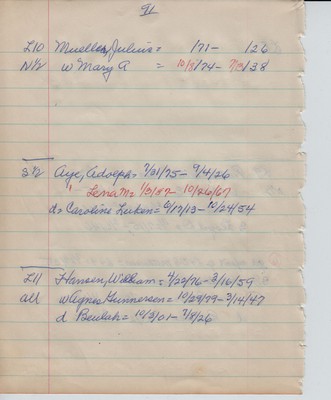 91
L10 Mueller, Julius = /71 - /26
N½ w Mary A = 10/ /74 - 7/ /38
S½ Aye, Adolph = 7/31/75 - 9/4/26
" Lena M = 1/3/87 - 10/26/67
d = Caroline Leuken = 6/19/13 - 10/24/54
L11 Hansen, William = 4/22/76 - 3/16/59
all w Agnes Gunnersen = 10/29/79 - 3/14/47
d Beulah = 10/3/01 - 7/8/26